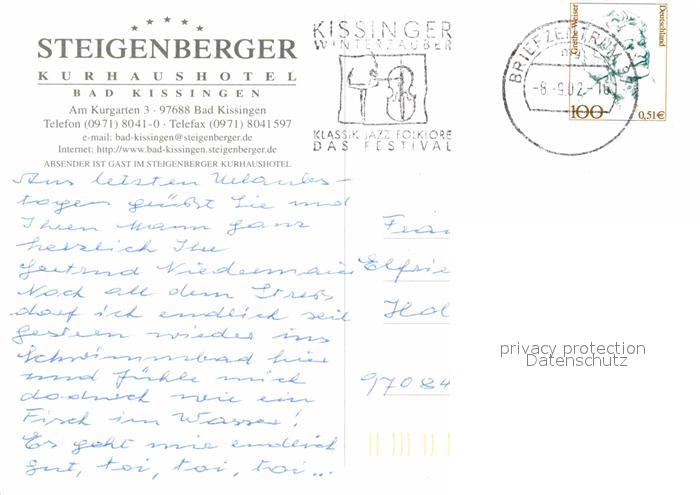 STEIGENBERGER
KURHAUSHOTEL
BAD KISSINGEN
Am Kurgarten 3 · 97688 Bad Kissingen
Telefon (0971) 8041-0 · Telefax (0971) 8041597
e-mail: bad-kissingen@steigenberger.de
Internet: http://www.bad-kissingen.steigenberger.de
ABSENDER IST GAST IM STEIGENBERGER KURHAUSHOTEL
KISSINGER
WINTERZAUBER
KLASSIK JAZZ FOLKLORE
DAS FESTIVAL
BRIEFZENTRUM
-8.-9.02.-18
Grete Weiser
Deutschland
100
0,51€
Aus letzten Urlaubs-
tagen grüßt Sie und
Ihren Mann ganz
herzlich Ihre
Gertrud Niedermaier
Noch all dem Streß
darf ich endlich seit
gestern wieder ins
Schwimmbad hier
und fühle mich
dadurch wie ein
Fisch im Wasser!
Es geht mir endlich
gut, toi, toi, toi...
Frau
Elfrie
Hol
97084
privacy protection
Datenschutz